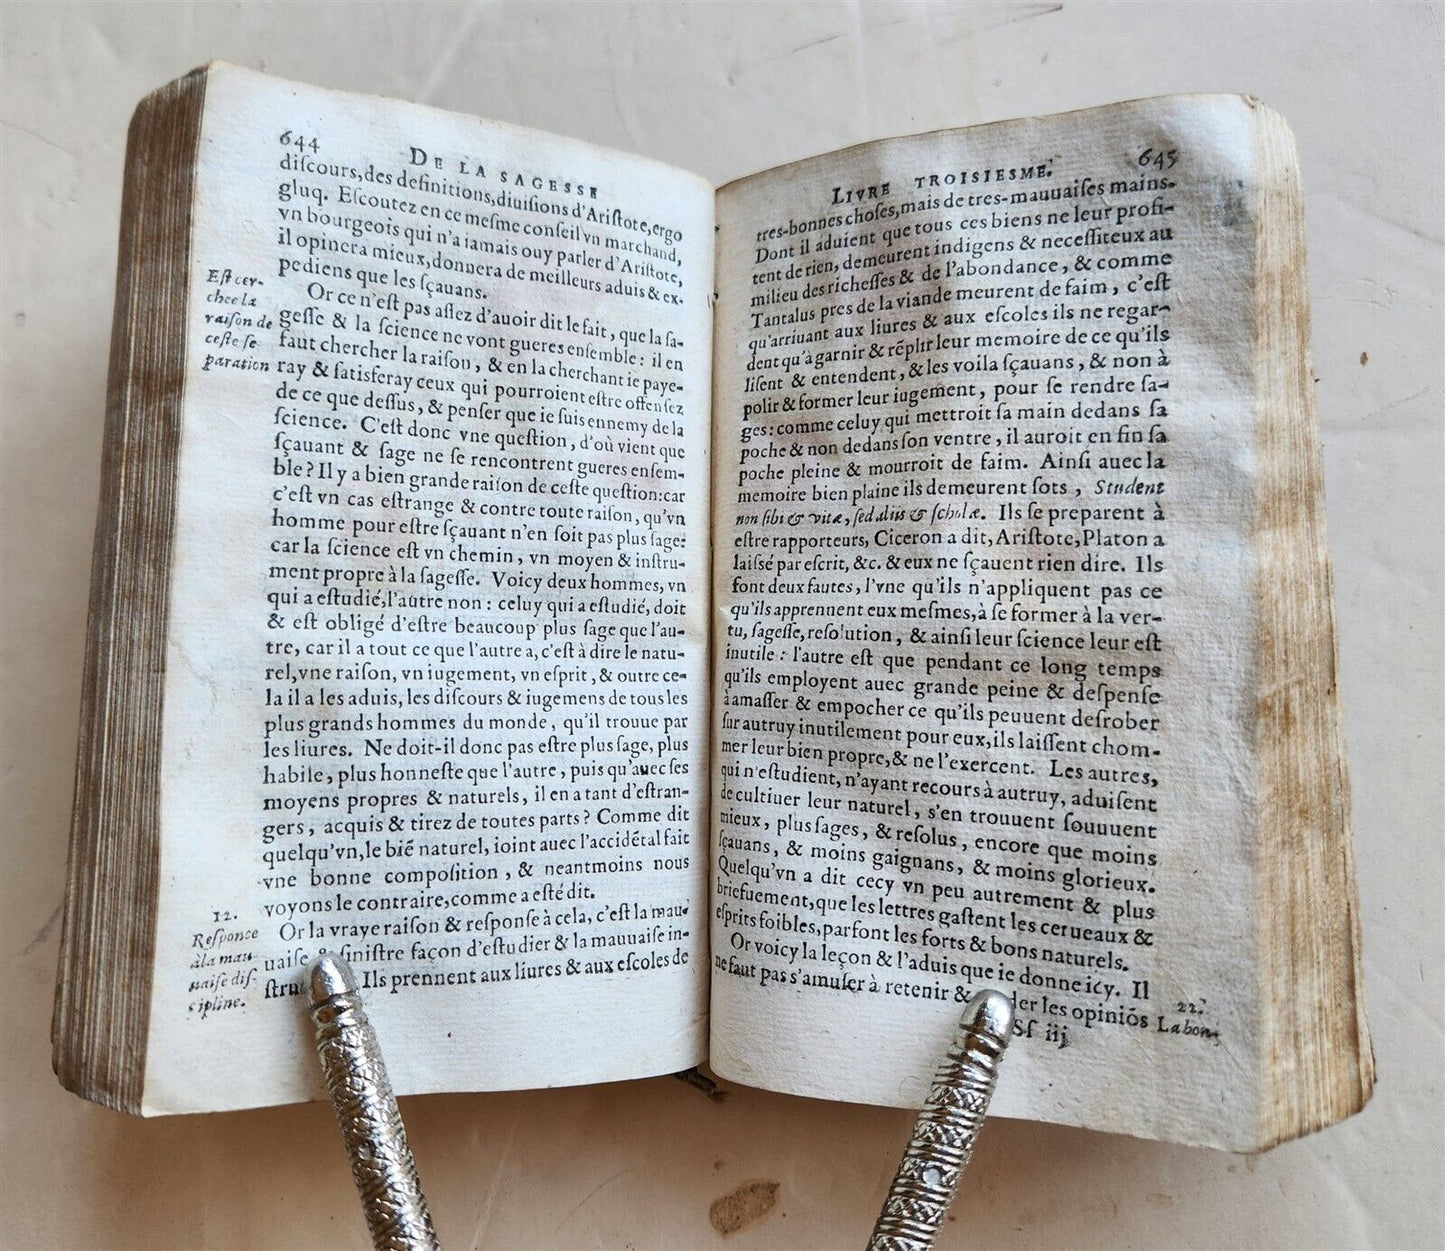 644
DE LA SAGESSE
diſcours,des definitions,diuiſions d'Ariſtote,ergo
gluq. Eſcoutez en ce meſme conſeil vn marchand,
vn bourgeois qui n'a iamais ouy parler d'Ariſtote,
il opinera mieux,donnera de meilleurs aduis & ex-
pediens que les ſçauans.
Or ce n'eſt pas aſſez d'auoir dit le fait, que la ſa-
geſſe & la ſcience ne vont gueres enſemble : il en
faut chercher la raiſon, & en la cherchant ie paye-
ray & ſatisferay ceux qui pourroient eſtre offenſez
de ce que deſſus, & penſer que ie ſuis ennemy de la
ſcience. C'eſt donc vne queſtion, d'où vient que
ſçauant & ſage ne ſe rencontrent gueres enſem-
ble? Il y a bien grande raiſon de ceſte queſtion:car
c'eſt vn cas eſtrange & contre toute raiſon, qu'vn
homme pour eſtre ſçauant n'en ſoit pas plus ſage:
car la ſcience eſt vn chemin, vn moyen & inſtru-
ment propre à la ſageſſe. Voicy deux hommes, vn
qui a eſtudié,l'autre non : celuy qui a eſtudié, doit
& eſt obligé d'eſtre beaucoup plus ſage que l'au-
tre, car il a tout ce que l'autre a, c'eſt à dire le natu-
rel,vne raiſon, vn iugement, vn eſprit, & outre ce-
la il a les aduis, les diſcours & iugemens de tous les
plus grands hommes du monde, qu'il trouue par
les liures. Ne doit-il donc pas eſtre plus ſage, plus
habile, plus honneſte que l'autre, puis qu'auec ſes
moyens propres & naturels, il en a tant d'eſtran-
gers, acquis & tirez de toutes parts? Comme dit
quelqu'vn,le biẽ naturel, ioint auec l'accidẽtal fait
vne bonne compoſition, & neantmoins nous
voyons le contraire,comme a eſté dit.
Or la vraye raiſon & reſponſe à cela, c'eſt la mau-
uaiſe & ſiniſtre façon d'eſtudier & la mauuaiſe in-
Ils prennent aux liures & aux eſcoles de
Eſt cer-
chee la
raiſon de
ceſte ſe-
paration
12.
Reſponce
à la mau-
uaiſe diſ-
cipline.
LIVRE TROISIESME.
645
tres-bonnes choſes,mais de tres-mauuaiſes mains.
Dont il aduient que tous ces biens ne leur profi-
tent de rien, demeurent indigens & neceſſiteux au
milieu des richeſſes & de l'abondance, & comme
Tantalus pres de la viande meurent de faim, c'eſt
qu'arriuant aux liures & aux eſcoles ils ne regar-
dent qu'à garnir & rẽplir leur memoire de ce qu'ils
liſent & entendent, & les voila ſçauans, & non à
polir & former leur iugement, pour ſe rendre ſa-
ges: comme celuy qui mettroit ſa main dedans ſa
poche & non dedans ſon ventre, il auroit en fin ſa
poche pleine & mourroit de faim. Ainſi auec la
memoire bien plaine ils demeurent ſots, Student
non ſibi & vitæ, ſed aliis & ſcholæ. Ils ſe preparent à
eſtre rapporteurs, Ciceron a dit, Ariſtote, Platon a
laiſsé par eſcrit, &c. & eux ne ſçauent rien dire. Ils
font deux fautes, l'vne qu'ils n'appliquent pas ce
qu'ils apprennent eux meſmes,à ſe former à la ver-
tu, ſageſſe, reſolution, & ainſi leur ſcience leur eſt
inutile : l'autre eſt que pendant ce long temps
qu'ils employent auec grande peine & deſpenſe
à amaſſer & empocher ce qu'ils peuuent deſrober
ſur autruy inutilement pour eux,ils laiſſent chom-
mer leur bien propre,& ne l'exercent. Les autres,
qui n'eſtudient, n'ayant recours à autruy, aduiſent
de cultiuer leur naturel, s'en trouuent ſouuuent
mieux, plus ſages, & reſolus, encore que moins
ſçauans, & moins gaignans, & moins glorieux.
Quelqu'vn a dit cecy vn peu autrement & plus
briefuement,que les lettres gaſtent les cerueaux &
eſprits foibles, parfont les forts & bons naturels.
Or voicy la leçon & l'aduis que ie donne icy. Il
ne faut pas s'amuſer à retenir & der les opiniõs
Sſ iij
22.
La bon-